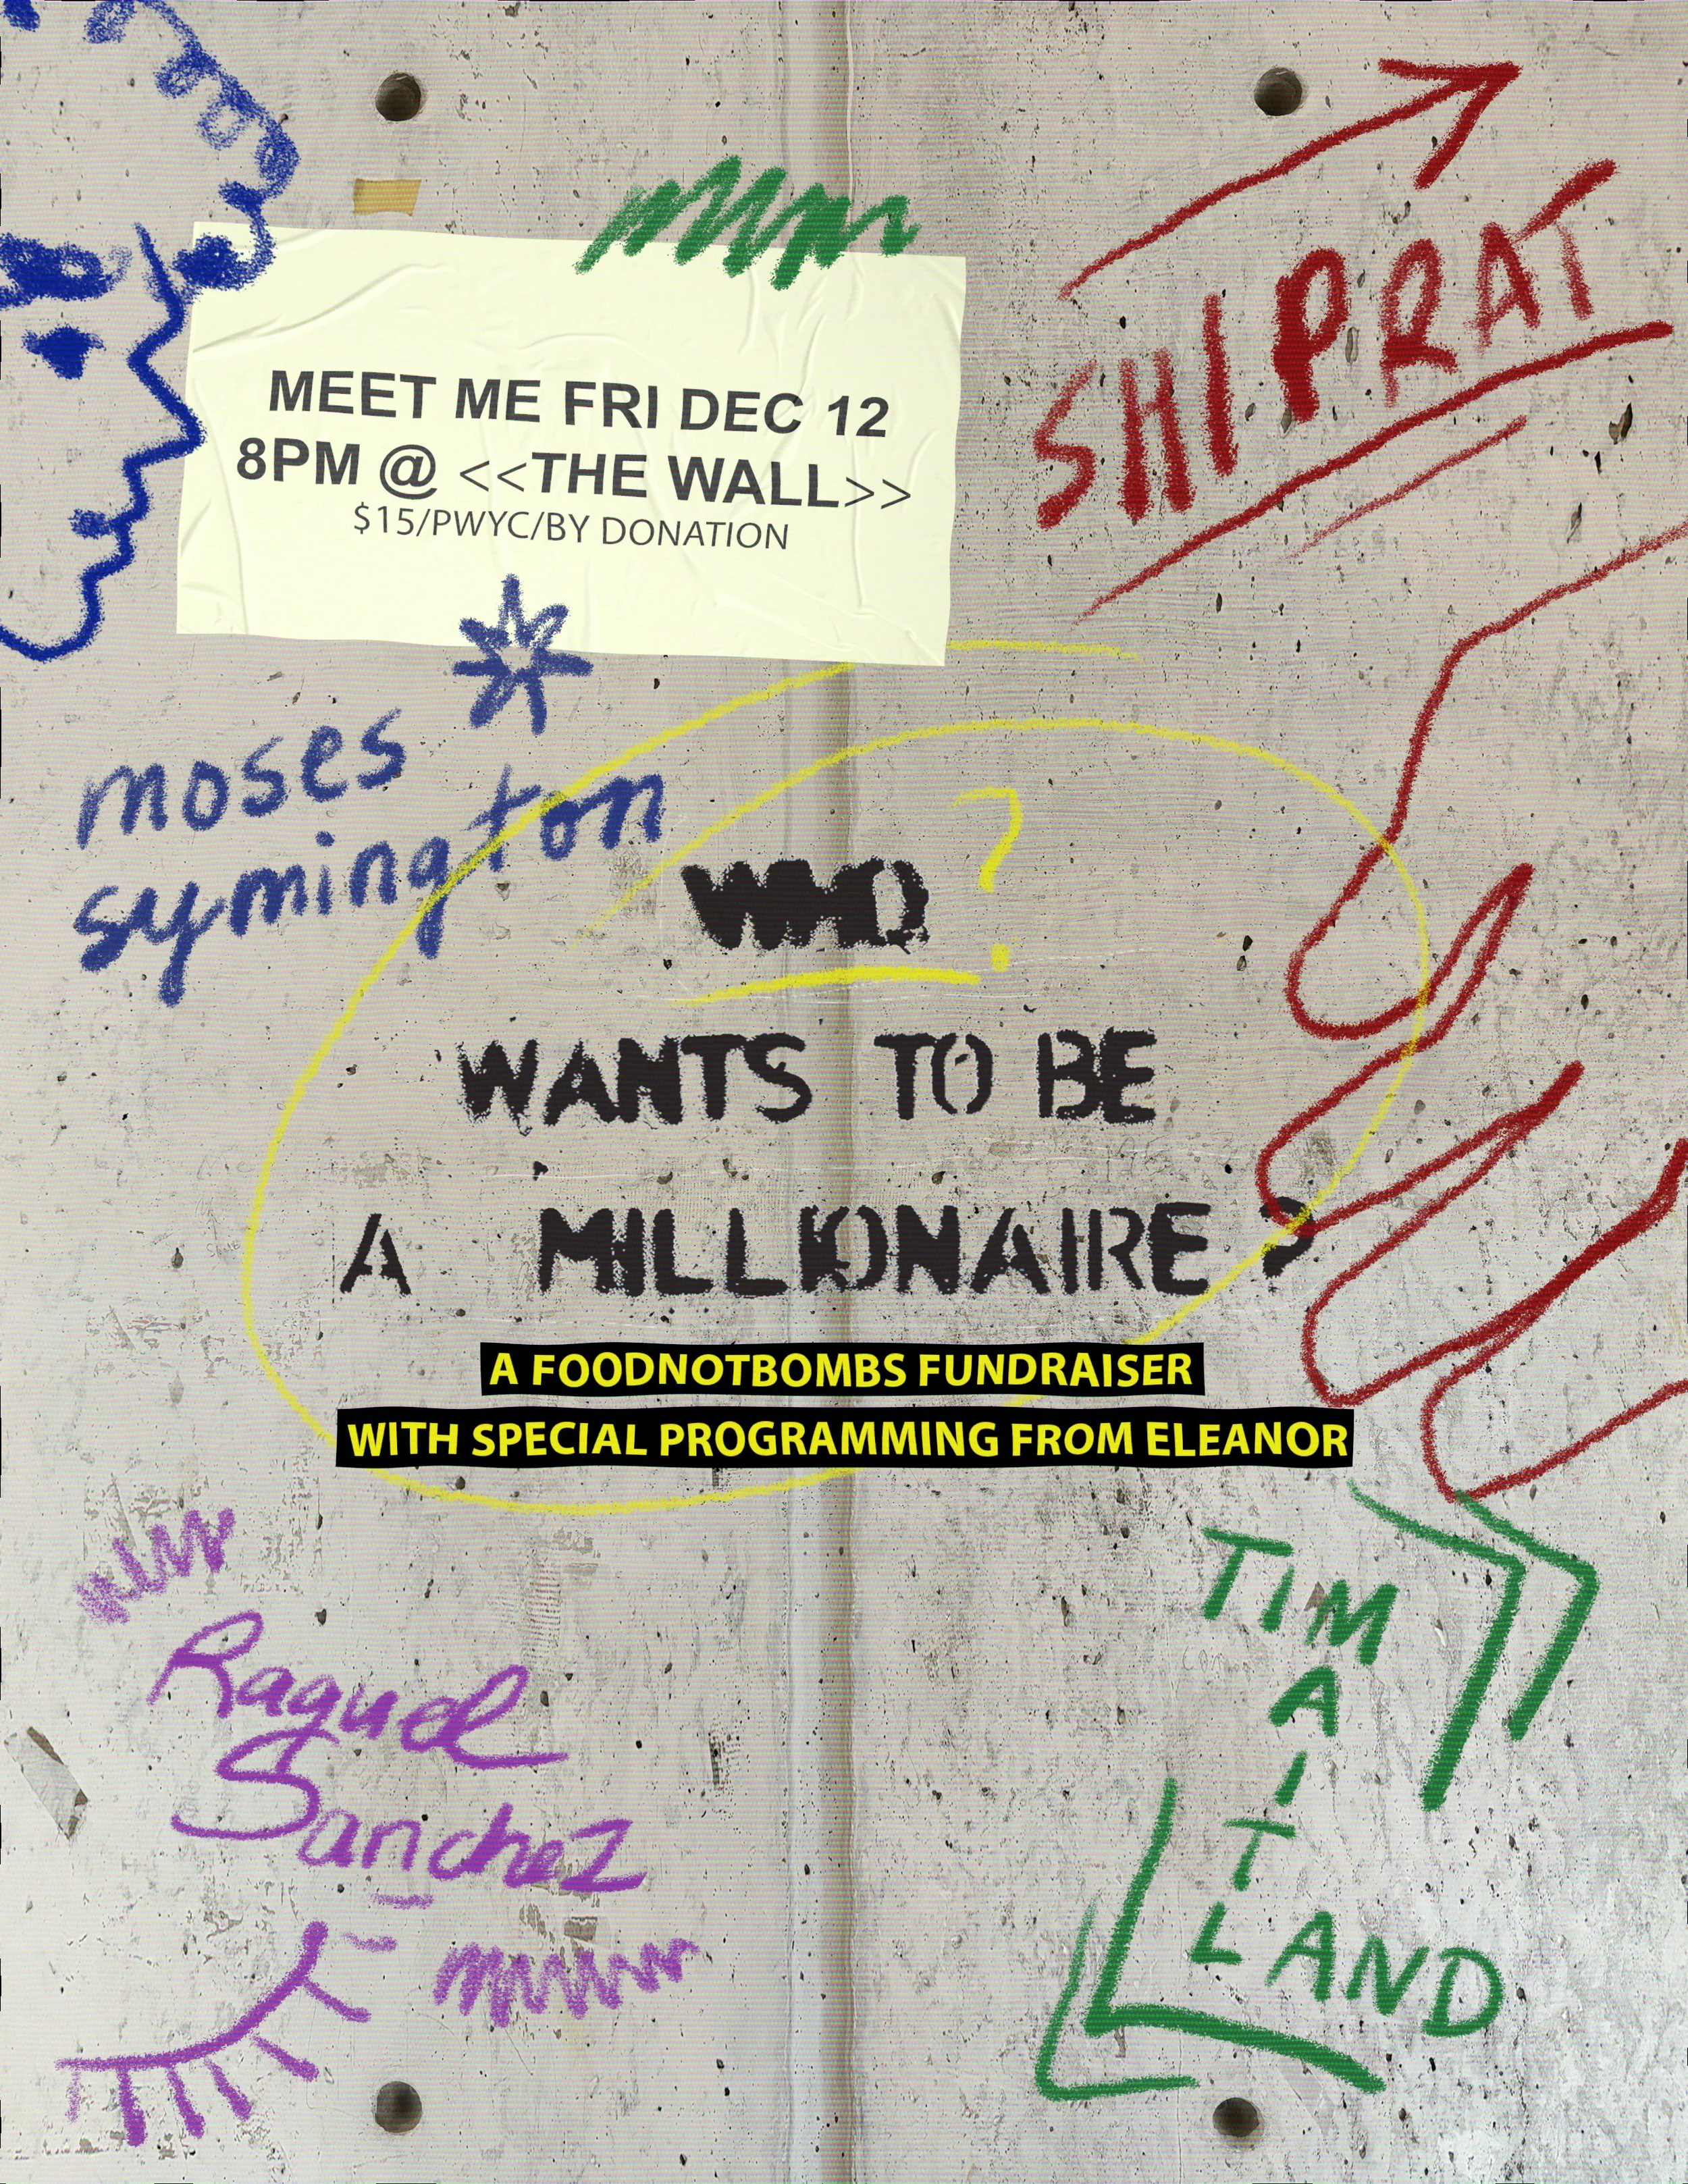 SHIPRAT
MEET ME FRI DEC 12
8PM @ <<THE WALL>>
$15/PWYC/BY DONATION
moses
symington
WHO ?
WANTS TO BE
A MILLIONAIRE ?
A FOODNOTBOMBS FUNDRAISER
WITH SPECIAL PROGRAMMING FROM ELEANOR
Raquel
Sanchez
TIM
A
I
T
LAND